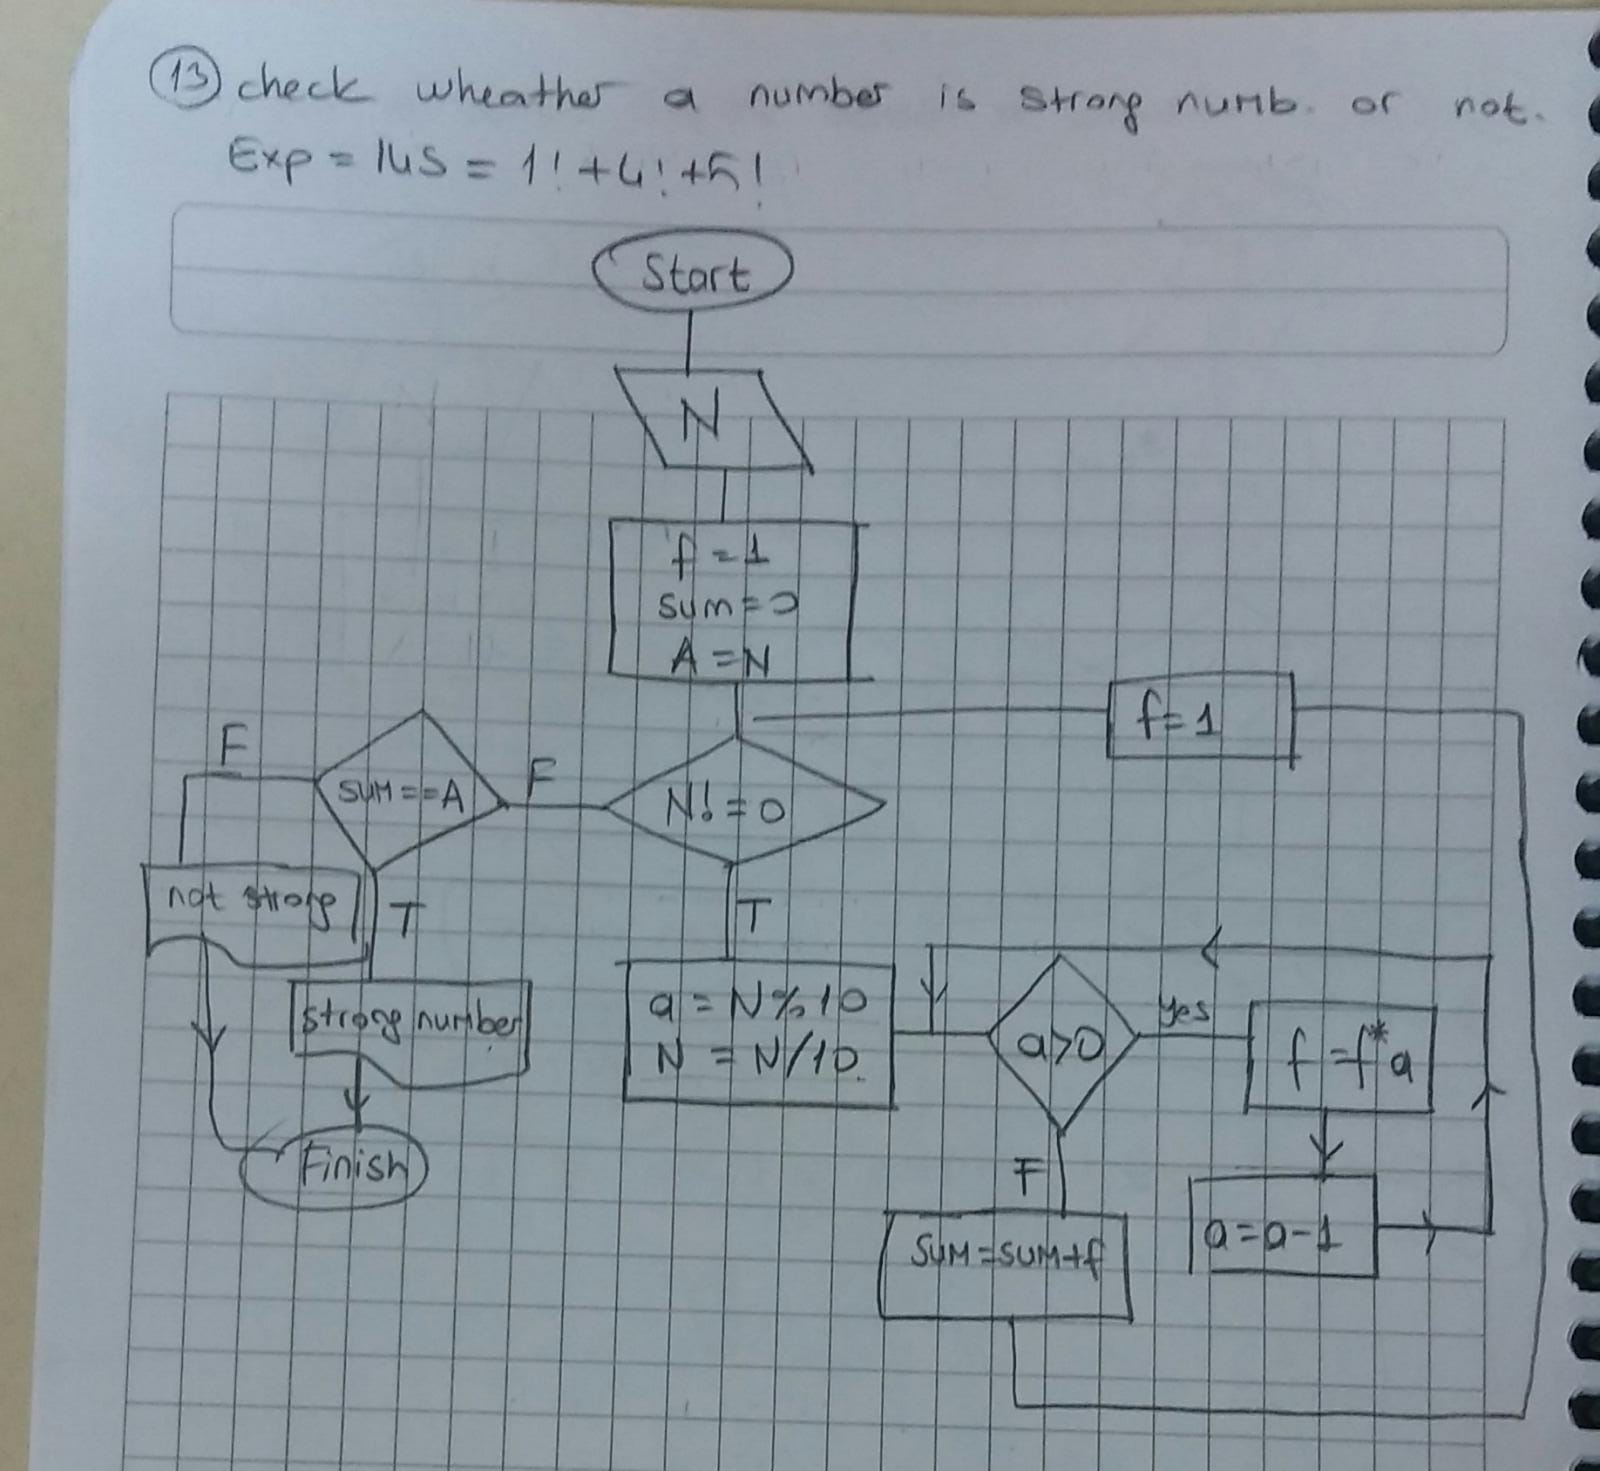 13 check wheather a number is strong numb. or not.
Exp = 145 = 1! + 4! + 5!
Start
N
f = 1
sum = 0
A = N
f = 1
F
sum == A
F
N! = 0
not strong
T
T
strong number
a = N % 10
N = N/10
a > 0
yes
f = f * a
Finish
F
sum = sum + f
a = a - 1